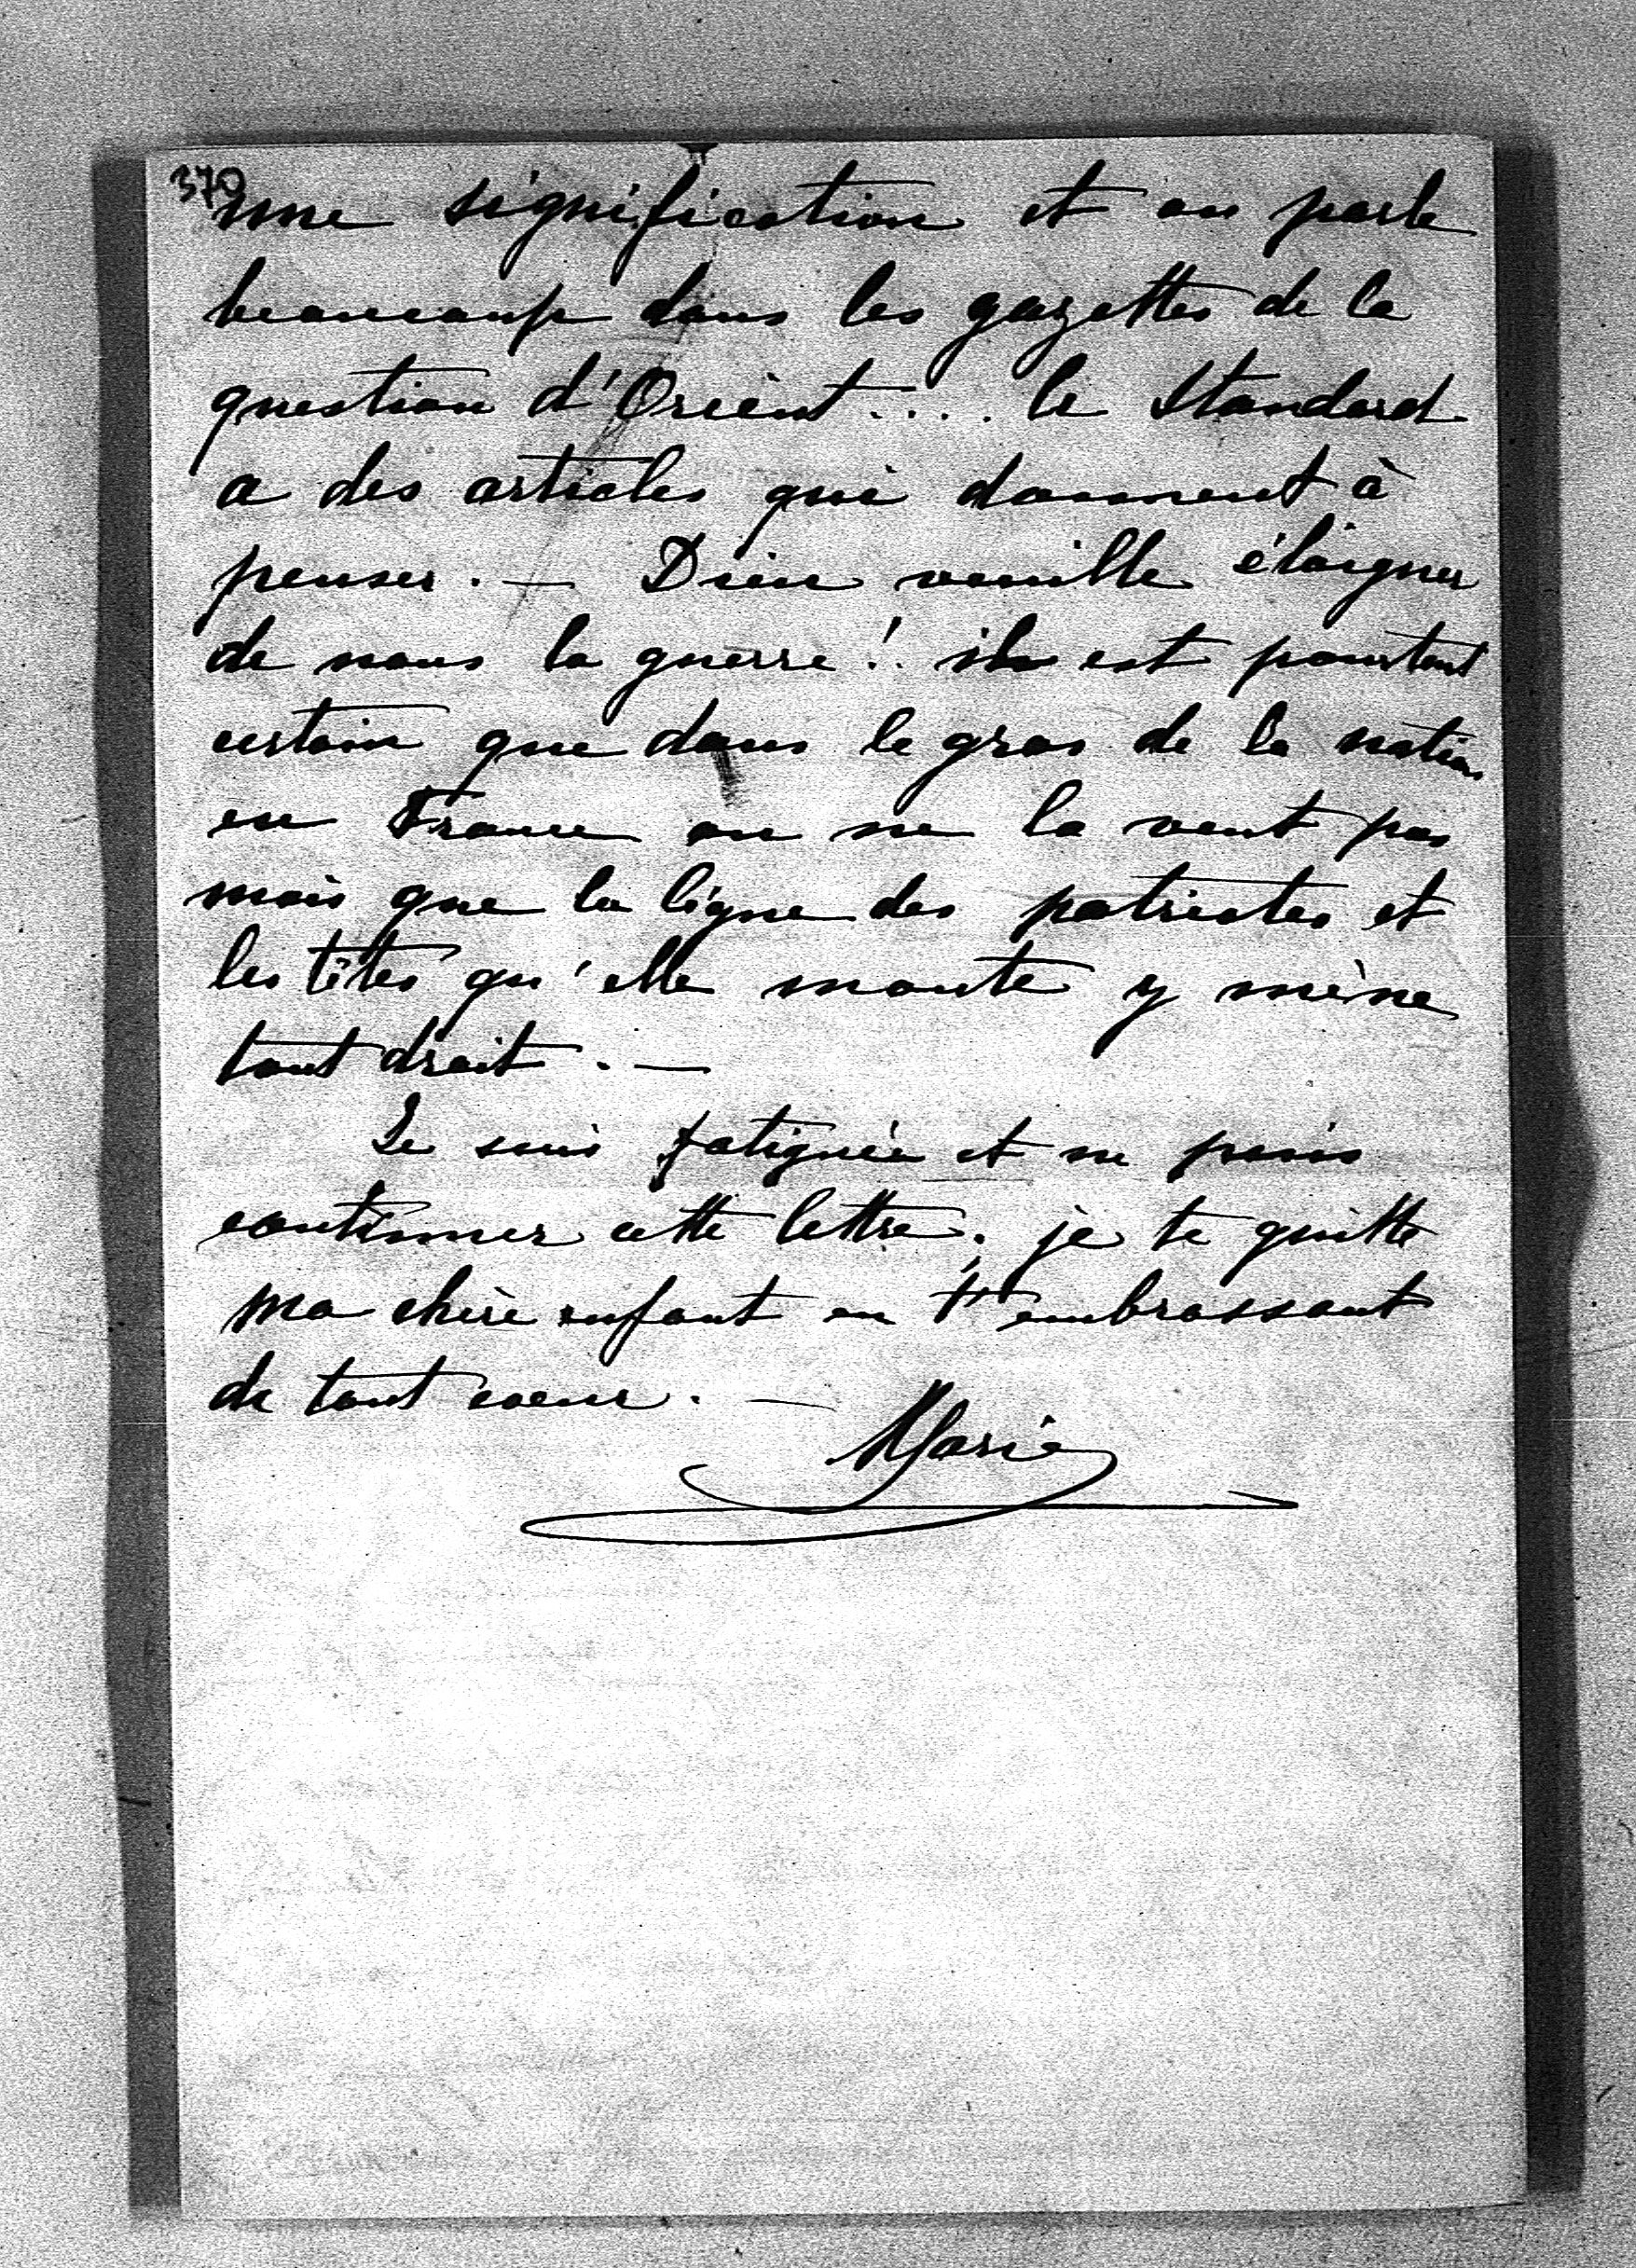 370
une signification et on parle
beaucoup dans les gazettes de la
question d'Orient.... le Standard
a des articles qui donnent à
penser. — Dieu veuille éloigner
de nous la guerre!. il est pourtant
certain que dans le gros de la nation
en France on ne la veut pas
mais que la ligne des patriotes et
les têtes qu'elle monte y mène
tout droit. —
Je suis fatiguée et ne puis
continuer cette lettre; je te quitte
ma chère enfant en t'embrassant
de tout coeur. —
Marie